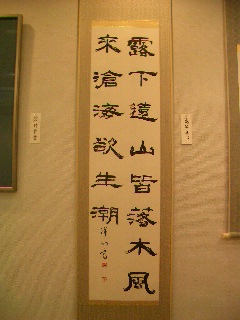 露下遠山皆落木風
來滄海欲生潮